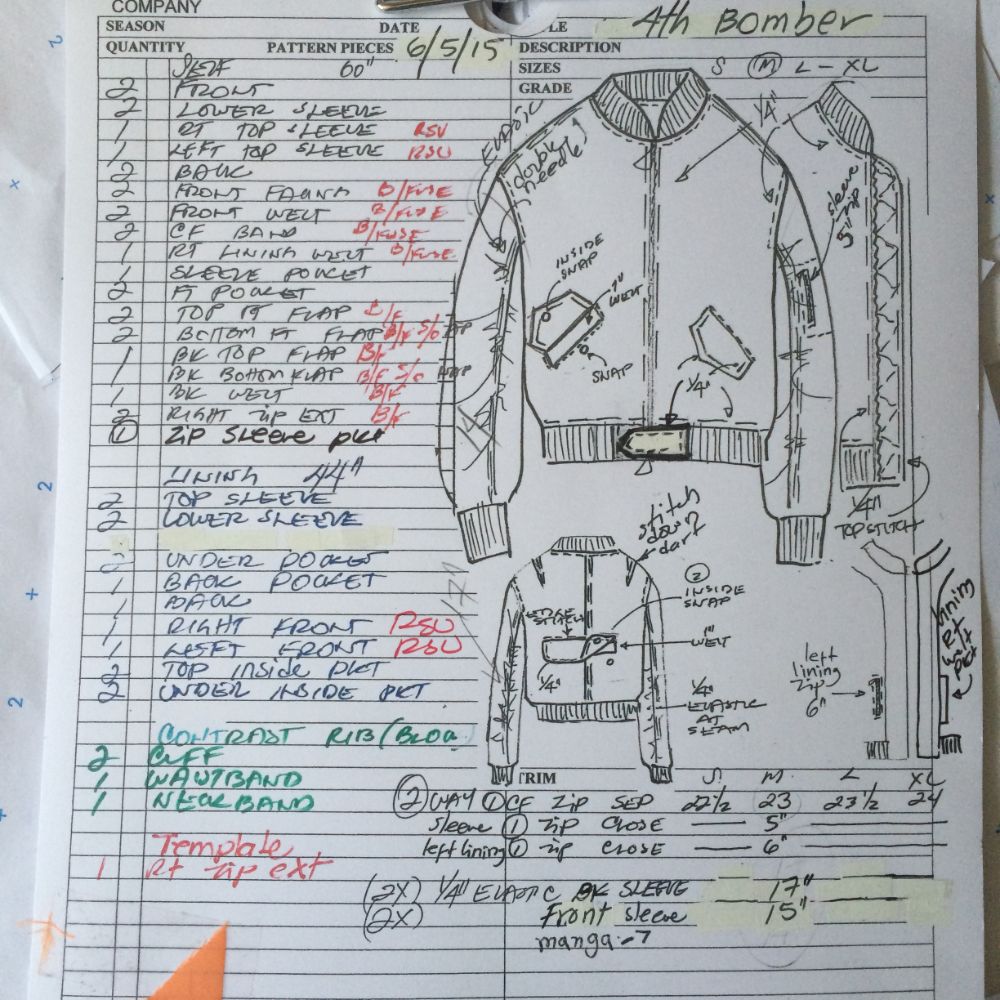 COMPANY
SEASON
DATE
4th Bomber
QUANTITY
PATTERN PIECES
6/5/15
DESCRIPTION
SELF 60"
SIZES
S (M) L - XL
GRADE
2 FRONT
2 LOWER SLEEVE
1 RT TOP SLEEVE RSU
1 LEFT TOP SLEEVE RSU
2 BACK
2 FRONT FACING B/FUSE
2 FRONT WELT B/FUSE
2 CF BAND B/FUSE
1 RT LINING WELT B/FUSE
1 SLEEVE POCKET
2 FT POCKET
2 TOP FT FLAP B/F
2 BOTTOM FT FLAP B/F S/O
1 BK TOP FLAP B/F
1 BK BOTTOM FLAP B/F S/O
1 BK WELT B/F
2 RIGHT ZIP EXT B/F
1 Zip Sleeve pkt
LINING 44"
2 TOP SLEEVE
2 LOWER SLEEVE
2 UNDER POCKET
1 BACK POCKET
1 BACK
1 RIGHT FRONT RSU
1 LEFT FRONT RSU
2 TOP INSIDE PKT
2 UNDER INSIDE PKT
CONTRAST RIB
2 CUFF
1 WAISTBAND
1 NECKBAND
Template
1 Rt zip ext
ELASTIC
double needle
1/4"
sleeve 5" zip
INSIDE SNAP
1" WELT
SNAP
1/4"
1/4" TOPSTITCH
stitch down dart
2 INSIDE SNAP
EDGE STITCH
1" WELT
1/4"
1/4" ELASTIC AT SEAM
left lining zip 6"
lining Rt welt pkt
TRIM
S M L XL
2 WAY 1 CF ZIP SEP 22 1/2 23 23 1/2 24
Sleeve 1 ZIP CLOSE 5"
left lining 1 zip CLOSE 6"
(2X) 1/4" ELASTIC BK SLEEVE 17"
(2X) Front sleeve 15"
manga - 7